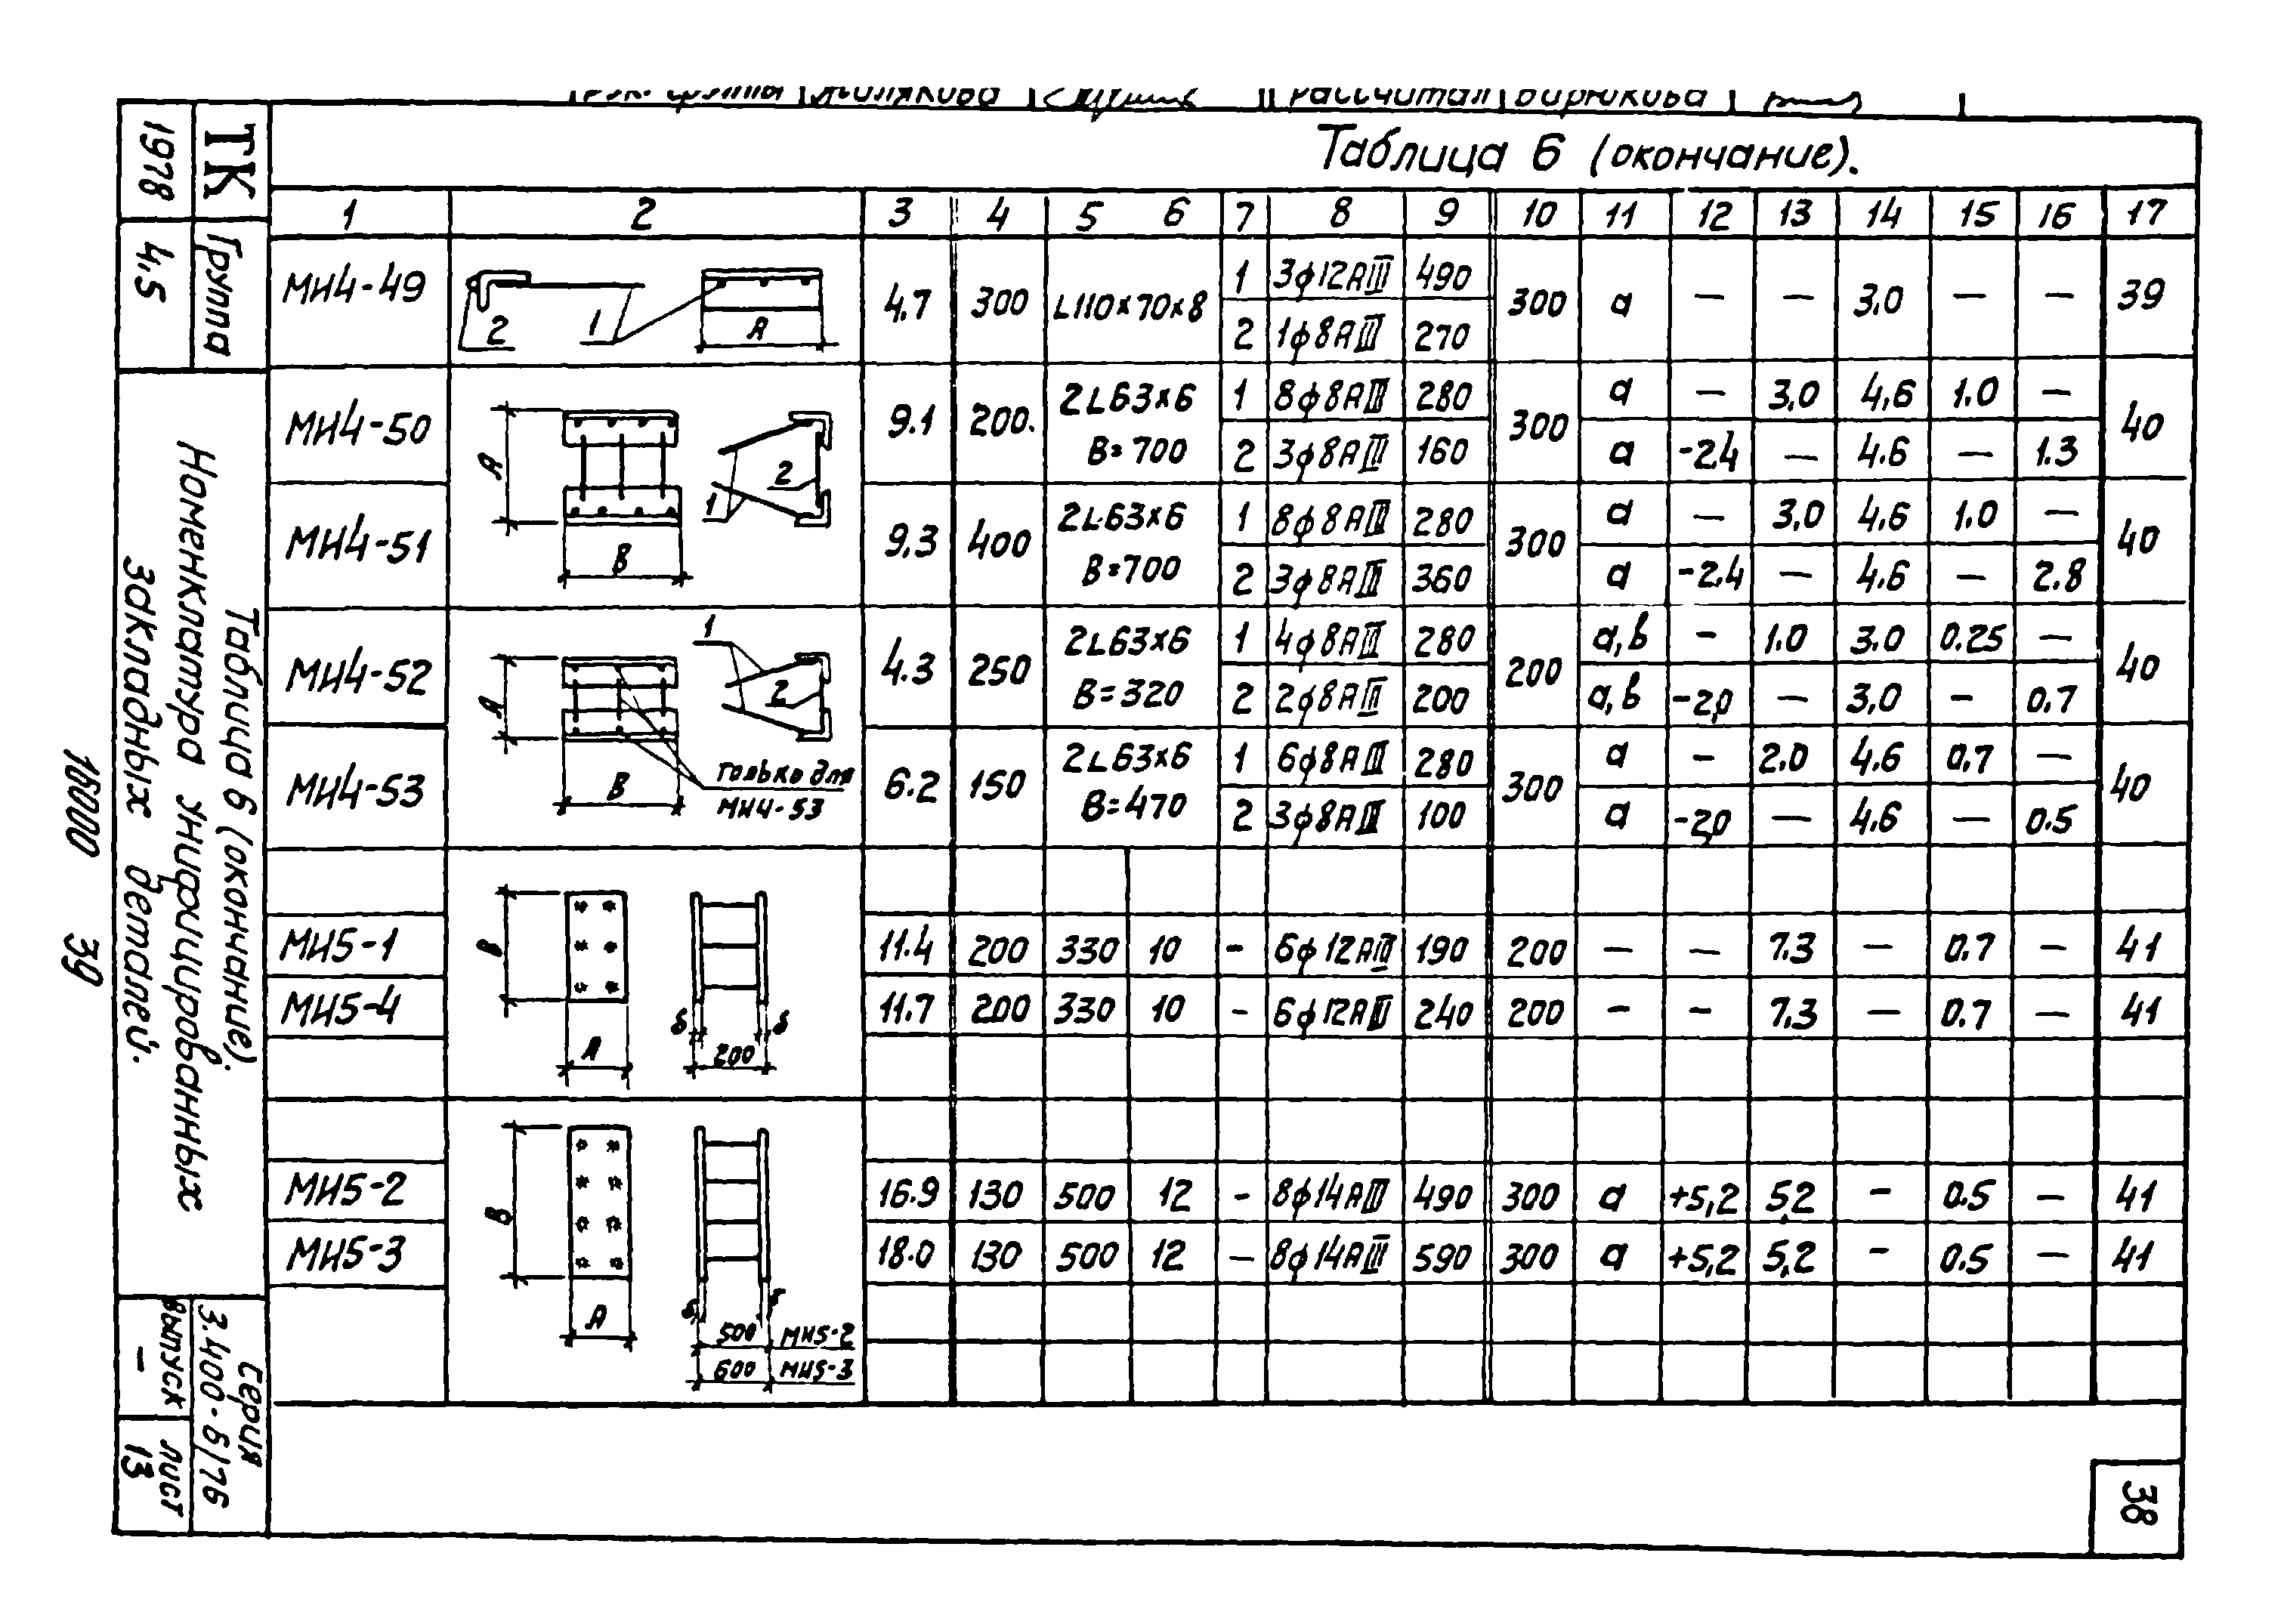 Рук. группы Жилякова Рассчитал Бирюкова
Таблица 6 (окончание).
1 2 3 4 5 6 7 8 9 10 11 12 13 14 15 16 17
МИ4-49 4.7 300 L110×70×8 300 а — — 3,0 — — 39
1 3ϕ12АIII 490
2 1ϕ8АIII 270
2 1 А
МИ4-50 9.1 200. 2L63×6 В=700 300 40
1 8ϕ8АIII 280 а — 3,0 4,6 1.0 —
2 3ϕ8АIII 160 а -2.4 — 4.6 — 1.3
А 2 1 В
МИ4-51 9.3 400 2L63×6 В=700 300 40
1 8ϕ8АIII 280 а — 3,0 4.6 1.0 —
2 3ϕ8АIII 360 а -2.4 — 4.6 — 2.8
МИ4-52 4.3 250 2L63×6 В=320 200 40
1 4ϕ8АIII 280 а,в - 1.0 3.0 0.25 —
2 2ϕ8АIII 200 а,в -2,0 — 3,0 - 0.7
1 А 2 В
только для
МИ4-53
МИ4-53 6.2 150 2L63×6 В=470 300 40
1 6ϕ8АIII 280 а - 2.0 4.6 0.7 —
2 3ϕ8АIII 100 а -2,0 — 4.6 — 0.5
МИ5-1 11.4 200 330 10 - 6ϕ12АIII 190 200 — — 7.3 — 0.7 — 41
МИ5-4 11.7 200 330 10 - 6ϕ12АIII 240 200 - - 7.3 — 0.7 — 41
В А δ δ 200
МИ5-2 16.9 130 500 12 - 8ϕ14АIII 490 300 а +5,2 5,2 - 0.5 — 41
МИ5-3 18.0 130 500 12 — 8ϕ14АIII 590 300 а +5,2 5,2 - 0.5 — 41
В А δ δ
500 МИ5-2
600 МИ5-3
ТК
1978
Группа
4.5
Таблица 6 (окончание).
Номенклатура унифицированных
закладных деталей.
Серия
3.400-6/76
Выпуск
—
лист
13
16000 39
38